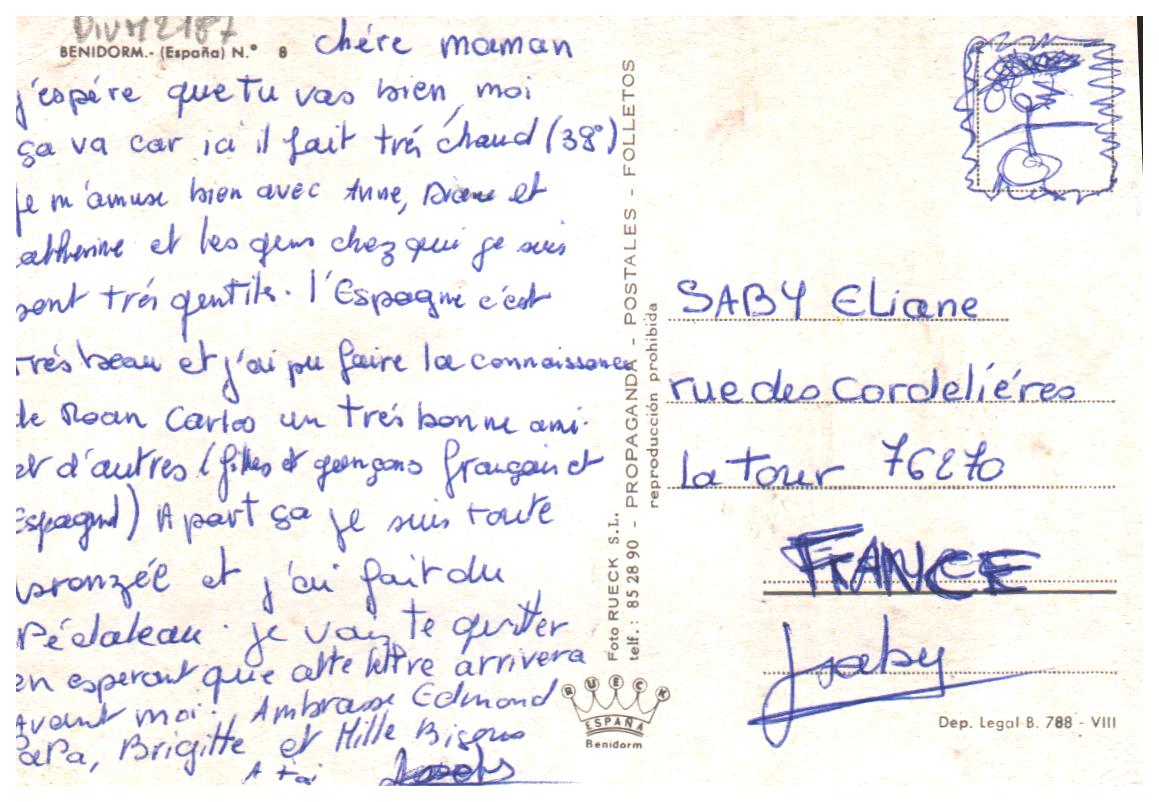 DIVM2187
BENIDORM.- (España) N.º 8
chére maman
j'espére que tu vas bien, moi
ça va car ici il fait trés chaud (38°)
je m'amuse bien avec Anne, Diane et
catherine et les gens chez qui je suis
sont trés gentils. l'Espagne c'est
trés beau et j'ai pu faire la connaissance
de Roan Carlos un trés bonne ami.
et d'autres (filles et garçons français et
Espagnol) A part ça je suis toute
bronzée et j'ai fait du
Pédaleau. je vais te quitter
en esperant que cette lettre arrivera
Avant moi. Ambrasse Edmond
PaPa, Brigitte et Mille Bisous
A toi
Foto RUECK S.L.
telf.: 85 28 90 - PROPAGANDA - POSTALES - FOLLETOS
reproducción prohibida
RUECK
ESPAÑA
Benidorm
SABY Eliane
rue des Cordeliéres
La Tour 76270
FRANCE
Saby
Dep. Legal B. 788 - VIII